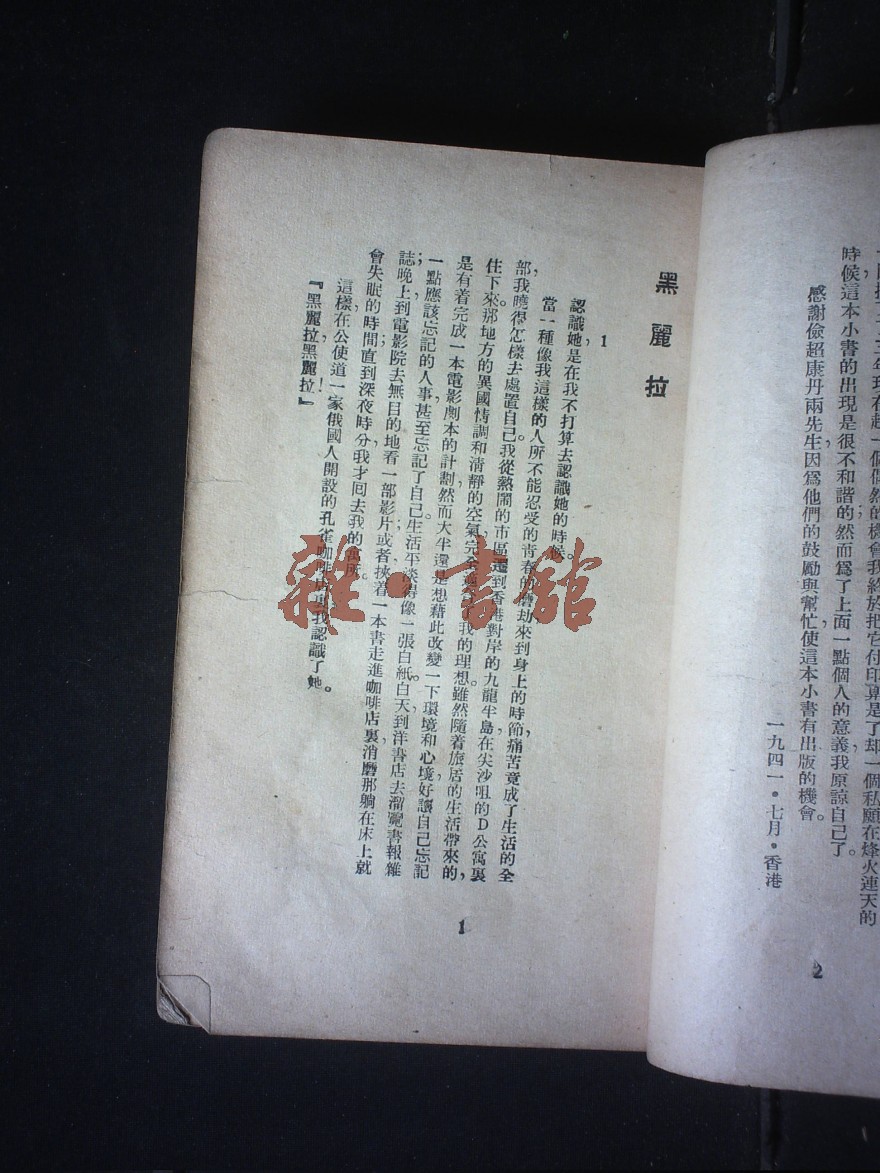 時候這本小書的出現是很不和諧的；然而爲了上面一點個人的意義我原諒自己了。
感謝儉超康丹兩先生因爲他們的鼓勵與幫忙使這本小書有出版的機會。
一九四一・七月・香港
2
黑麗拉
1
認識她是在我不打算去認識她的時候。
當一種像我這樣的人所不能忍受的青春的磨劫來到身上的時節，痛苦竟成了生活的全
部，我曉得怎樣去處置自己。我從熱鬧的市區 到香港對岸的九龍半島在尖沙咀的D公寓裏
住下來。那地方的異國情調和清靜的空氣完全 我的理想。雖然隨着旅居的生活帶來的，
是有着完成一本電影劇本的計劃然而大半還是想藉此改變一下環境和心境好讓自己忘記
一點應該忘記的人事甚至忘記了自己。生活平淡得像一張白紙白天到洋書店去溜覽書報雜
誌；晚上到電影院去無目的地看一部影片；或者挾着一本書走進咖啡店裏消磨那躺在床上就
會失眠的時間，直到深夜時分，我才回去我的寓所。
這樣，在公使道一家俄國人開設的孔雀咖啡店裏我認識了她。
『黑麗拉！黑麗拉』
1
雜・書館